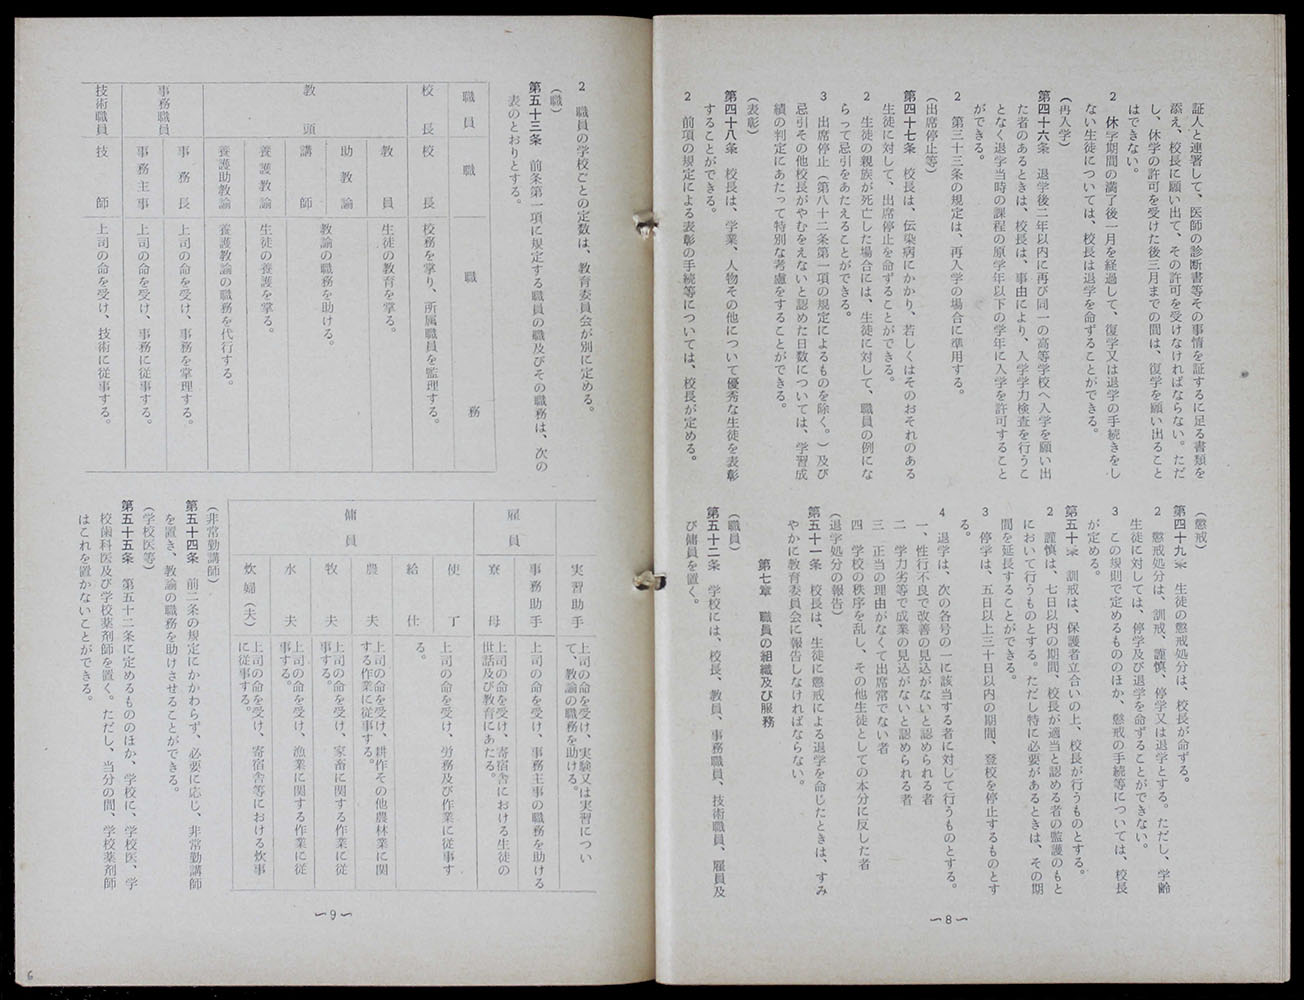 証人と連署して、医師の診断書等その事情を証するに足る書類を
添え、校長に願い出て、その許可を受けなければならない。ただ
し、休学の許可を受けた後三月までの間は、復学を願い出ること
はできない。
2 休学期間の満了後一月を経過して、復学又は退学の手続きをし
ない生徒については、校長は退学を命ずることができる。
(再入学)
第四十六条 退学後二年以内に再び同一の高等学校へ入学を願い出
た者のあるときは、校長は、事由により、入学学力検査を行うこ
となく退学当時の課程の原学年以下の学年に入学を許可すること
ができる。
2 第三十三条の規定は、再入学の場合に準用する。
(出席停止等)
第四十七条 校長は、伝染病にかかり、若しくはそのおそれのある
生徒に対して、出席停止を命ずることができる。
2 生徒の親族が死亡した場合には、生徒に対して、職員の例にな
らって忌引をあたえることができる。
3 出席停止(第八十二条第一項の規定によるものを除く。)及び
忌引その他校長がやむをえないと認めた日数については、学習成
績の判定にあたって特別な考慮をすることができる。
(表彰)
第四十八条 校長は、学業、人物その他について優秀な生徒を表彰
することができる。
2 前項の規定による表彰の手続等については、校長が定める。
(懲戒)
第四十九条 生徒の懲戒処分は、校長が命ずる。
2 懲戒処分は、訓戒、謹慎、停学又は退学とする。ただし、学齢
生徒に対しては、停学及び退学を命ずることができない。
3 この規則で定めるもののほか、懲戒の手続等については、校長
が定める。
第五十条 訓戒は、保護者立合いの上、校長が行うものとする。
2 謹慎は、七日以内の期間、校長が適当と認める者の監護のもと
において行うものとする。ただし特に必要があるときは、その期
間を延長することができる。
3 停学は、五日以上三十日以内の期間、登校を停止するものとす
る。
4 退学は、次の各号の一に該当する者に対して行うものとする。
一、性行不良で改善の見込がないと認められる者
二 学力劣等で成業の見込がないと認められる者
三 正当の理由がなくて出席常でない者
四 学校の秩序を乱し、その他生徒としての本分に反した者
(退学処分の報告)
第五十一条 校長は、生徒に懲戒による退学を命じたときは、すみ
やかに教育委員会に報告しなければならない。
第七章 職員の組織及び服務
(職員)
第五十二条 学校には、校長、教員、事務職員、技術職員、雇員及
び傭員を置く。
〜8〜
2 職員の学校ごとの定数は、教育委員会が別に定める。
(職)
第五十三条 前条第一項に規定する職員の職及びその職務は、次の
表のとおりとする。
職員 職 職務
校長 校長 校務を掌り、所属職員を監理する。
教頭 教員 生徒の教育を掌る。
助教諭
講師 教諭の職務を助ける。
養護教諭 生徒の養護を掌る。
養護助教諭 養護教諭の職務を代行する。
事務職員 事務長 上司の命を受け、事務を掌理する。
事務主事 上司の命を受け、事務に従事する。
技術職員 技師 上司の命を受け、技術に従事する。
実習助手 上司の命を受け、実験又は実習につい
て、教諭の職務を助ける。
雇員 事務助手 上司の命を受け、事務主事の職務を助ける
寮母 上司の命を受け、寄宿舎における生徒の
世話及び教育にあたる。
傭員 使丁 上司の命を受け、労務及び作業に従事す
給仕 る。
農夫 上司の命を受け、耕作その他農林業に関
する作業に従事する。
牧夫 上司の命を受け、家畜に関する作業に従
事する。
水夫 上司の命を受け、漁業に関する作業に従
事する。
炊婦(夫) 上司の命を受け、寄宿舎等における炊事
に従事する。
(非常勤講師)
第五十四条 前二条の規定にかかわらず、必要に応じ、非常勤講師
を置き、教諭の職務を助けさせることができる。
(学校医等)
第五十五条 第五十二条に定めるもののほか、学校に、学校医、学
校歯科医及び学校薬剤師を置く。ただし、当分の間、学校薬剤師
はこれを置かないことができる。
〜9〜
6